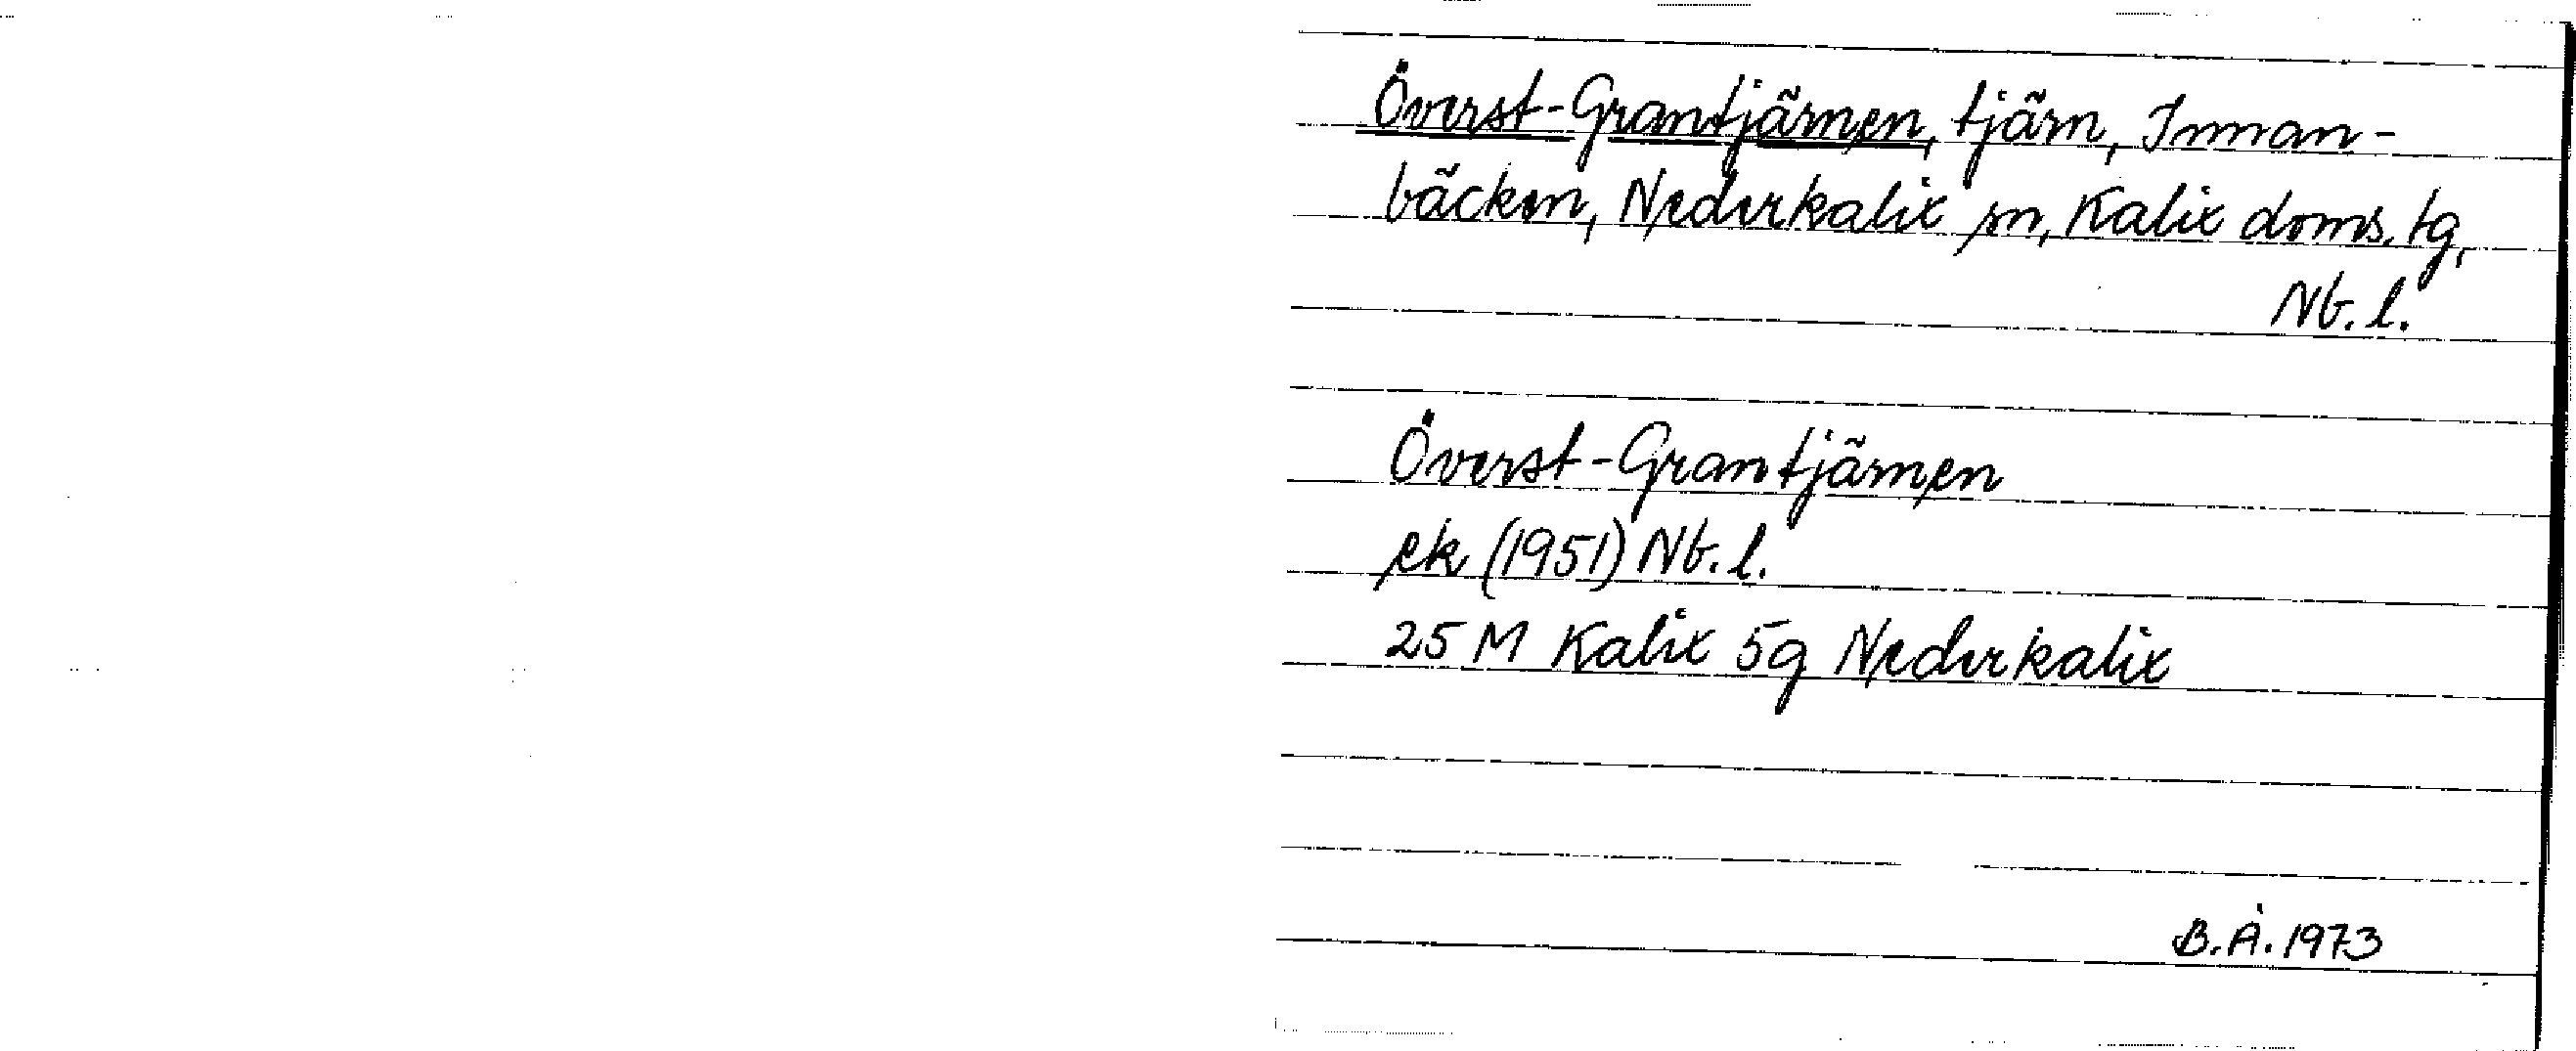 Överst-Grantjärnen, tjärn, Innan-
bäcken, Nederkalix sn, Kalix doms. tg,
Nb. l.
Överst-Grantjärnen
ek (1951) Nb. l.
25 M Kalix 5g Nederkalix
B.Å. 1973